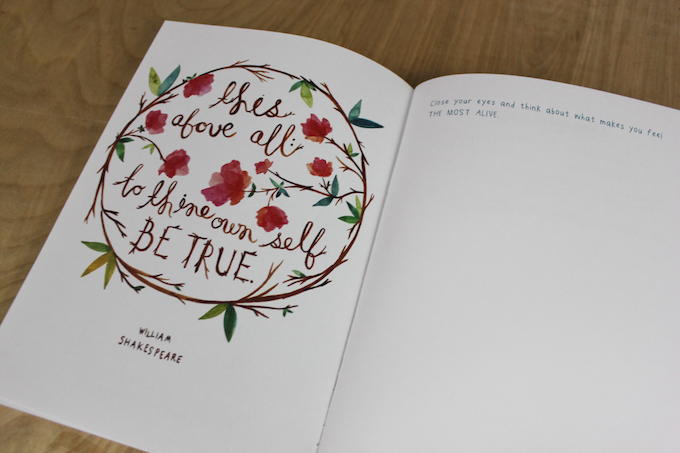 this
above all:
to thine own self
BE TRUE.
WILLIAM
SHAKESPEARE
Close your eyes and think about what makes you feel
THE MOST ALIVE.